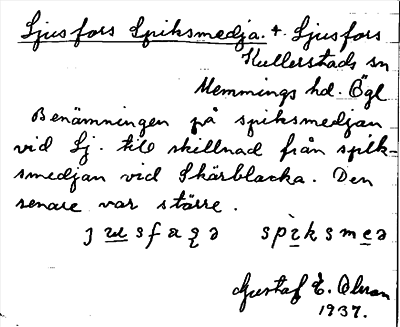 Ljusfors Spiksmedja. + Ljusfors
Kullerstads sn
Memmings hd. Ögl
Benämningen på spiksmedjan
vid Lj. till skillnad från spik-
smedjan vid Skärblacka. Den
senare var större.
spìksmeə
Gustaf E. Olsson
1937.